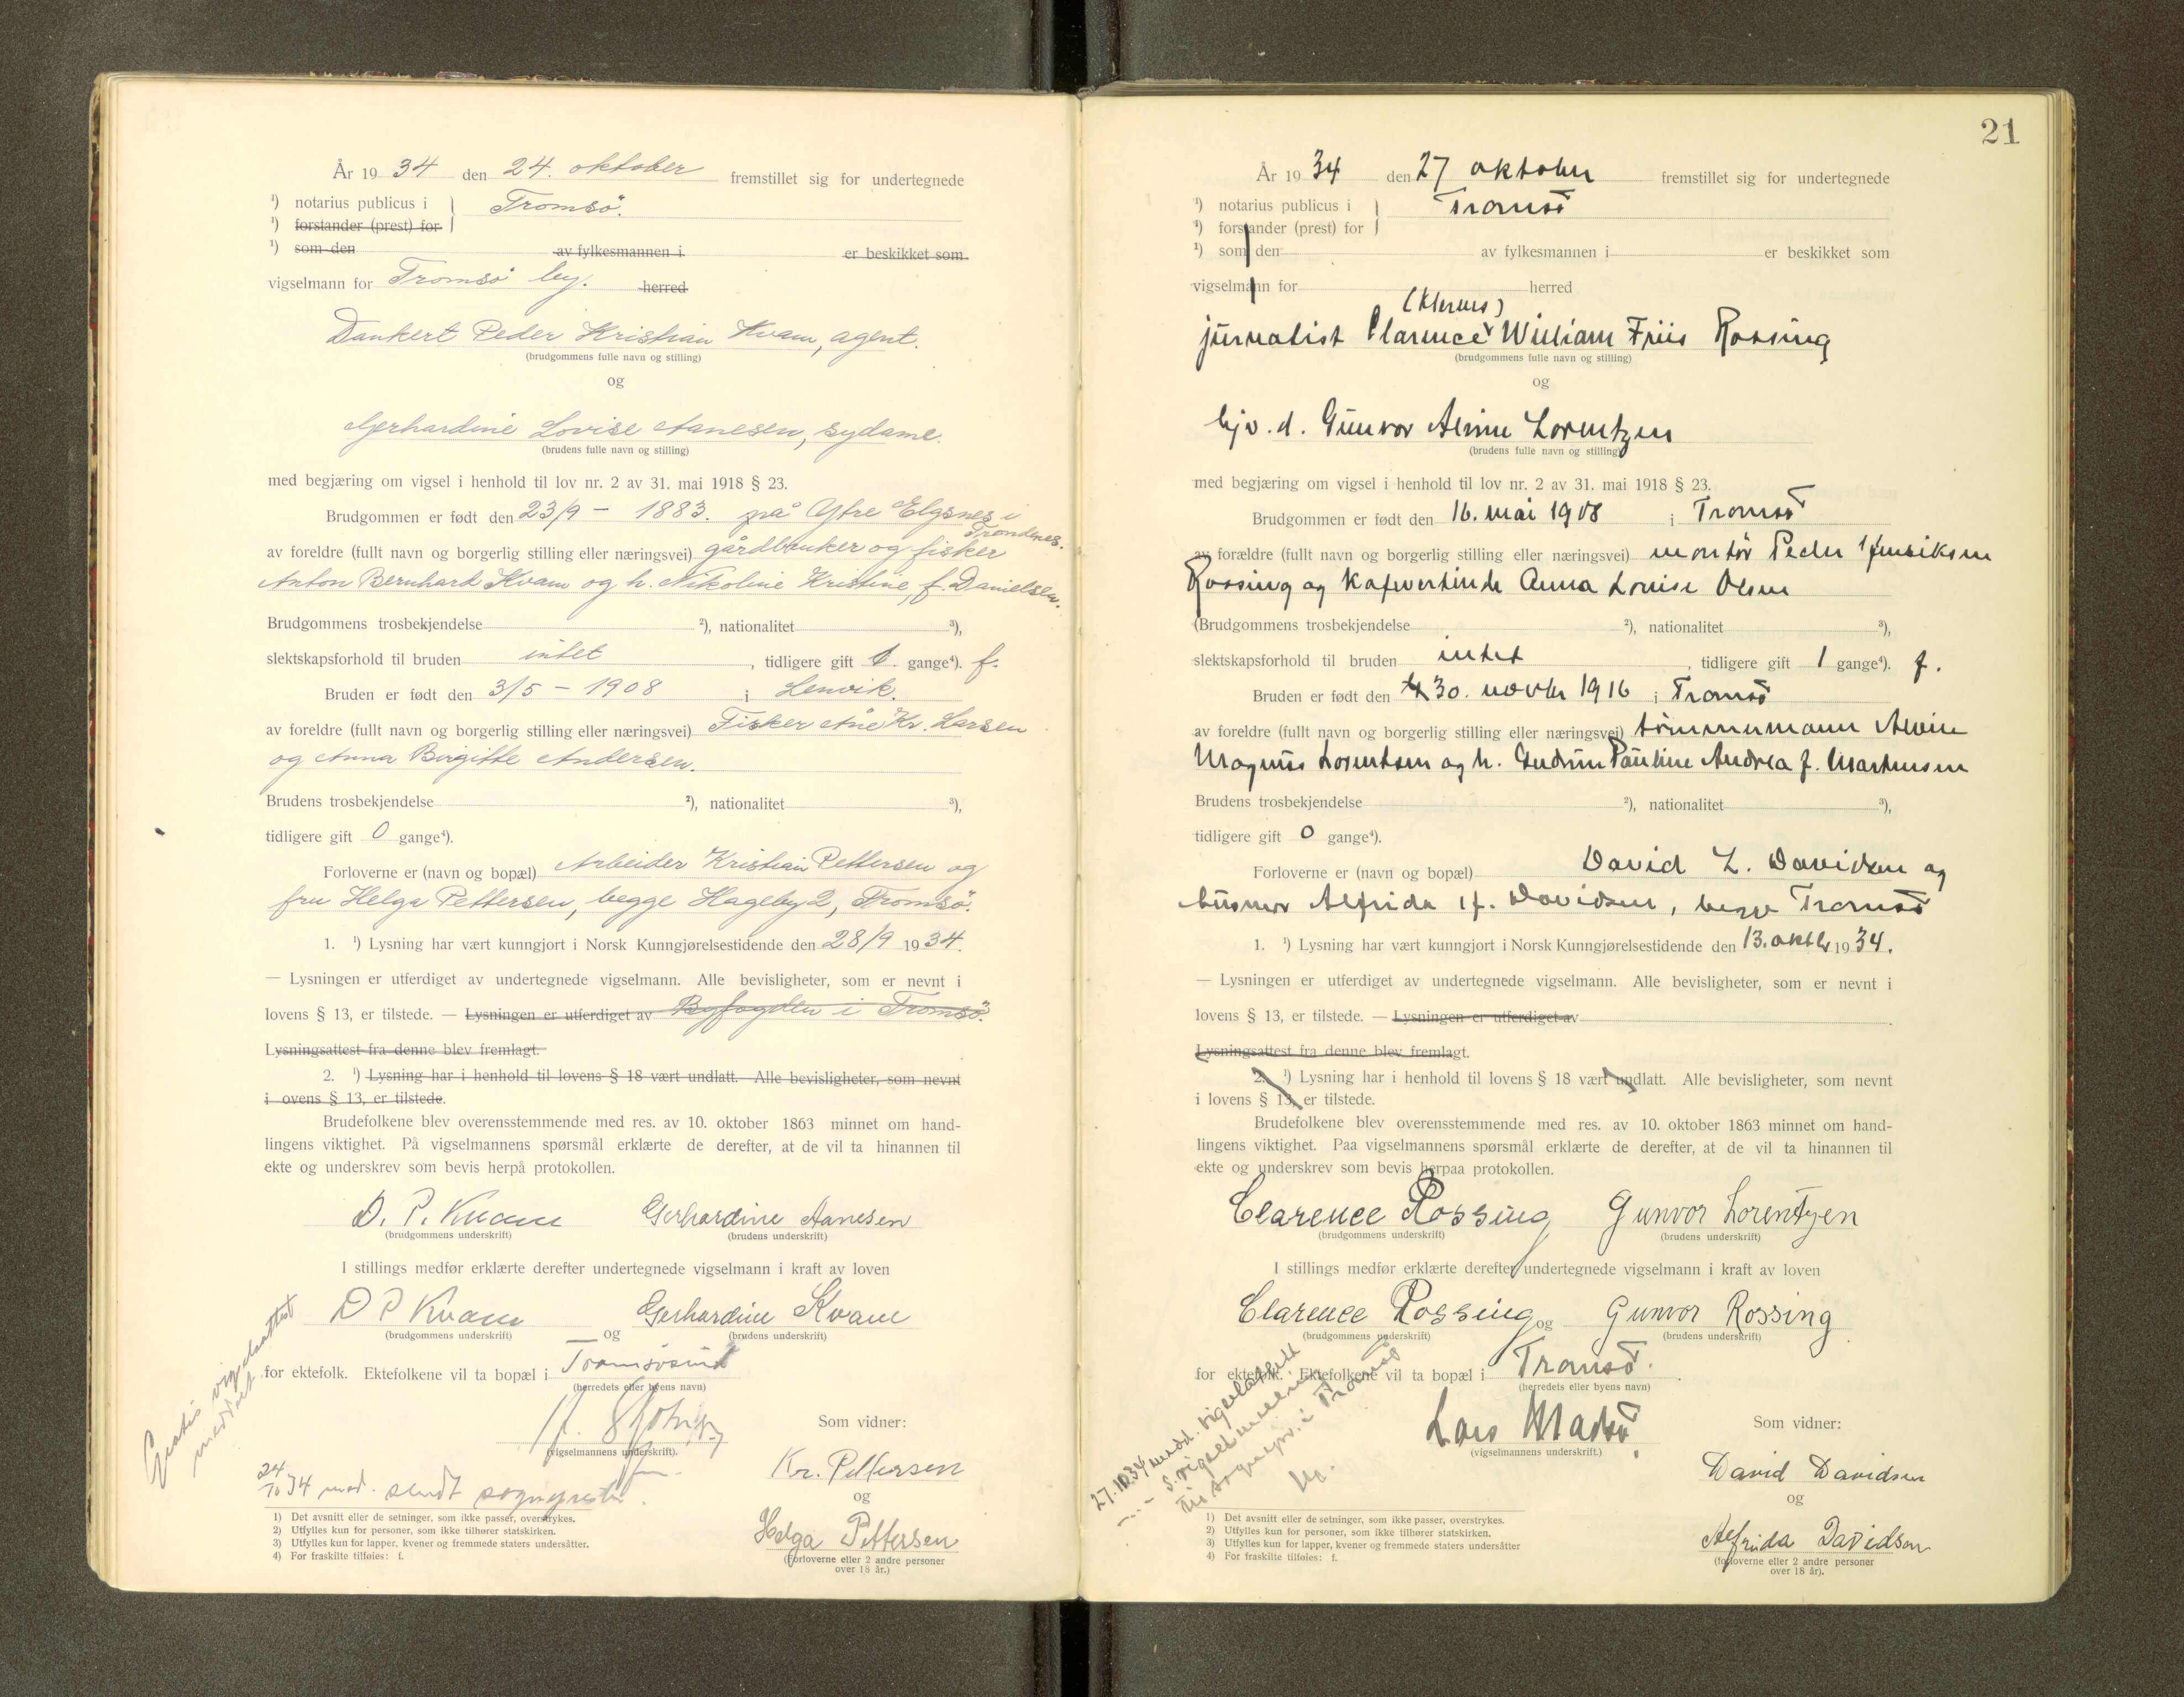 År 1934 den 24. oktober fremstillet sig for undertegnede
1) notarius publicus i } Tromsö.
1) forstander (prest) for
1) som den av fylkesmannen i er beskikket som
vigselmann for Tromsö by. herred
Dankert Peder Kristian Kvam, agent.
(brudgommens fulle navn og stilling)
og
Gjerhardine Lovise Aanesen, sydame.
(brudens fulle navn og stilling)
med begjæring om vigsel i henhold til lov nr. 2 av 31. mai 1918 § 23.
Brudgommen er født den 23/9 - 1883. på Ytre Elgsnes i
Trondenes.
av foreldre (fullt navn og borgerlig stilling eller næringsvei) gårdbruker og fisker
Anton Bernhard Kvam og h. Nikoline Kristine, f. Danielsen.
Brudgommens trosbekjendelse 2), nationalitet 3),
slektskapsforhold til bruden intet, tidligere gift 1 gange4). f.
Bruden er født den 3/5 - 1908 i Lenvik.
av foreldre (fullt navn og borgerlig stilling eller næringsvei) Fisker Åne Kr. Larsen
og Anna Birgitte Andersen.
Brudens trosbekjendelse 2), nationalitet 3),
tidligere gift 0 gange4).
Forloverne er (navn og bopæl) Arbeider Kristian Pettersen og
fru Helga Pettersen, begge Hageby 2, Tromsö.
1. 1) Lysning har vært kunngjort i Norsk Kunngjørelsestidende den 28/9 1934.
— Lysningen er utferdiget av undertegnede vigselmann. Alle bevisligheter, som er nevnt i
lovens § 13, er tilstede. — Lysningen er utferdiget av Byfogden i Tromsö.
Lysningsattest fra denne blev fremlagt.
2. 1) Lysning har i henhold til lovens § 18 vært undlatt. Alle bevisligheter, som nevnt
i ovens § 13, er tilstede.
Brudefolkene blev overensstemmende med res. av 10. oktober 1863 minnet om hand-
lingens viktighet. På vigselmannens spørsmål erklærte de derefter, at de vil ta hinannen til
ekte og underskrev som bevis herpå protokollen.
D. P. Kvam Gerhardine Aanesen
(brudgommens underskrift) (brudens underskrift)
I stillings medfør erklærte derefter undertegnede vigselmann i kraft av loven
D P Kvam og Gerhardine Kvam
(brudgommens underskrift) (brudens underskrift)
for ektefolk. Ektefolkene vil ta bopæl i Tromsösund
(herredets eller byens navn)
Gratis vigselsattest
meddelt.
Som vidner:
(vigselmannens underskrift).
Kr. Pettersen
og
Helga Pettersen
(Forloverne eller 2 andre personer
over 18 år.)
24/10 34 med. sendt sogneprest
1) Det avsnitt eller de setninger, som ikke passer, overstrykes.
2) Utfylles kun for personer, som ikke tilhører statskirken.
3) Utfylles kun for lapper, kvener og fremmede staters undersåtter.
4) For fraskilte tilføies: f.
21
År 1934 den 27 oktober fremstillet sig for undertegnede
1) notarius publicus i } Tromsö
1) forstander (prest) for
1) som den av fylkesmannen i er beskikket som
vigselmann for herred
(Klerens)
journalist Clarence William Friis Rossing
(brudgommens fulle navn og stilling)
og
hjv. d. Gunvor Alvine Lorentzen
(brudens fulle navn og stilling)
med begjæring om vigsel i henhold til lov nr. 2 av 31. mai 1918 § 23.
Brudgommen er født den 16. mai 1908 i Tromsö
av forældre (fullt navn og borgerlig stilling eller næringsvei) montör Peder Henriksen
Rossing og kafevertinde Anna Louise Olsen
(Brudgommens trosbekjendelse 2), nationalitet 3),
slektskapsforhold til bruden intet, tidligere gift 1 gange4). f.
Bruden er født den 30. novbr 1916 i Tromsö
av foreldre (fullt navn og borgerlig stilling eller næringsvei) tömmermann Alvin
Magnus Lorentsen og h. Gudrun Pauline Andrea f. Martensen
Brudens trosbekjendelse 2), nationalitet 3),
tidligere gift 0 gange4).
Forloverne er (navn og bopæl) David L. Davidsen og
husmor Alfrida f. Davidsen, begge Tromsö
1. 1) Lysning har vært kunngjort i Norsk Kunngjørelsestidende den 13. oktbr 1934.
— Lysningen er utferdiget av undertegnede vigselmann. Alle bevisligheter, som er nevnt i
lovens § 13, er tilstede. — Lysningen er utferdiget av
Lysningsattest fra denne blev fremlagt.
2. 1) Lysning har i henhold til lovens § 18 vært undlatt. Alle bevisligheter, som nevnt
i lovens § 13, er tilstede.
Brudefolkene blev overensstemmende med res. av 10. oktober 1863 minnet om hand-
lingens viktighet. Paa vigselmannens spørsmål erklærte de derefter, at de vil ta hinannen til
ekte og underskrev som bevis herpaa protokollen.
Clarence Rossing Gunvor Lorentzen
(brudgommens underskrift) (brudens underskrift)
I stillings medfør erklærte derefter undertegnede vigselmann i kraft av loven
Clarence Rossing og Gunvor Rossing
(brudgommens underskrift) (brudens underskrift)
for ektefolk. Ektefolkene vil ta bopæl i Tromsö.
(herredets eller byens navn)
27.10.34 medd. vigselattest
s. vigselmelding
til sognepr. i Tromsö
Lars Madsö
(vigselmannens underskrift.)
Som vidner:
David Davidsen
og
Alfrida Davidsen
(forloverne eller 2 andre personer
over 18 år).
1) Det avsnitt eller de setninger, som ikke passer, overstrykes.
2) Utfylles kun for personer, som ikke tilhører statskirken,
3) Utfylles kun for lapper, kvener og fremmede staters undersåtter
4) For fraskilte tilføies: f.